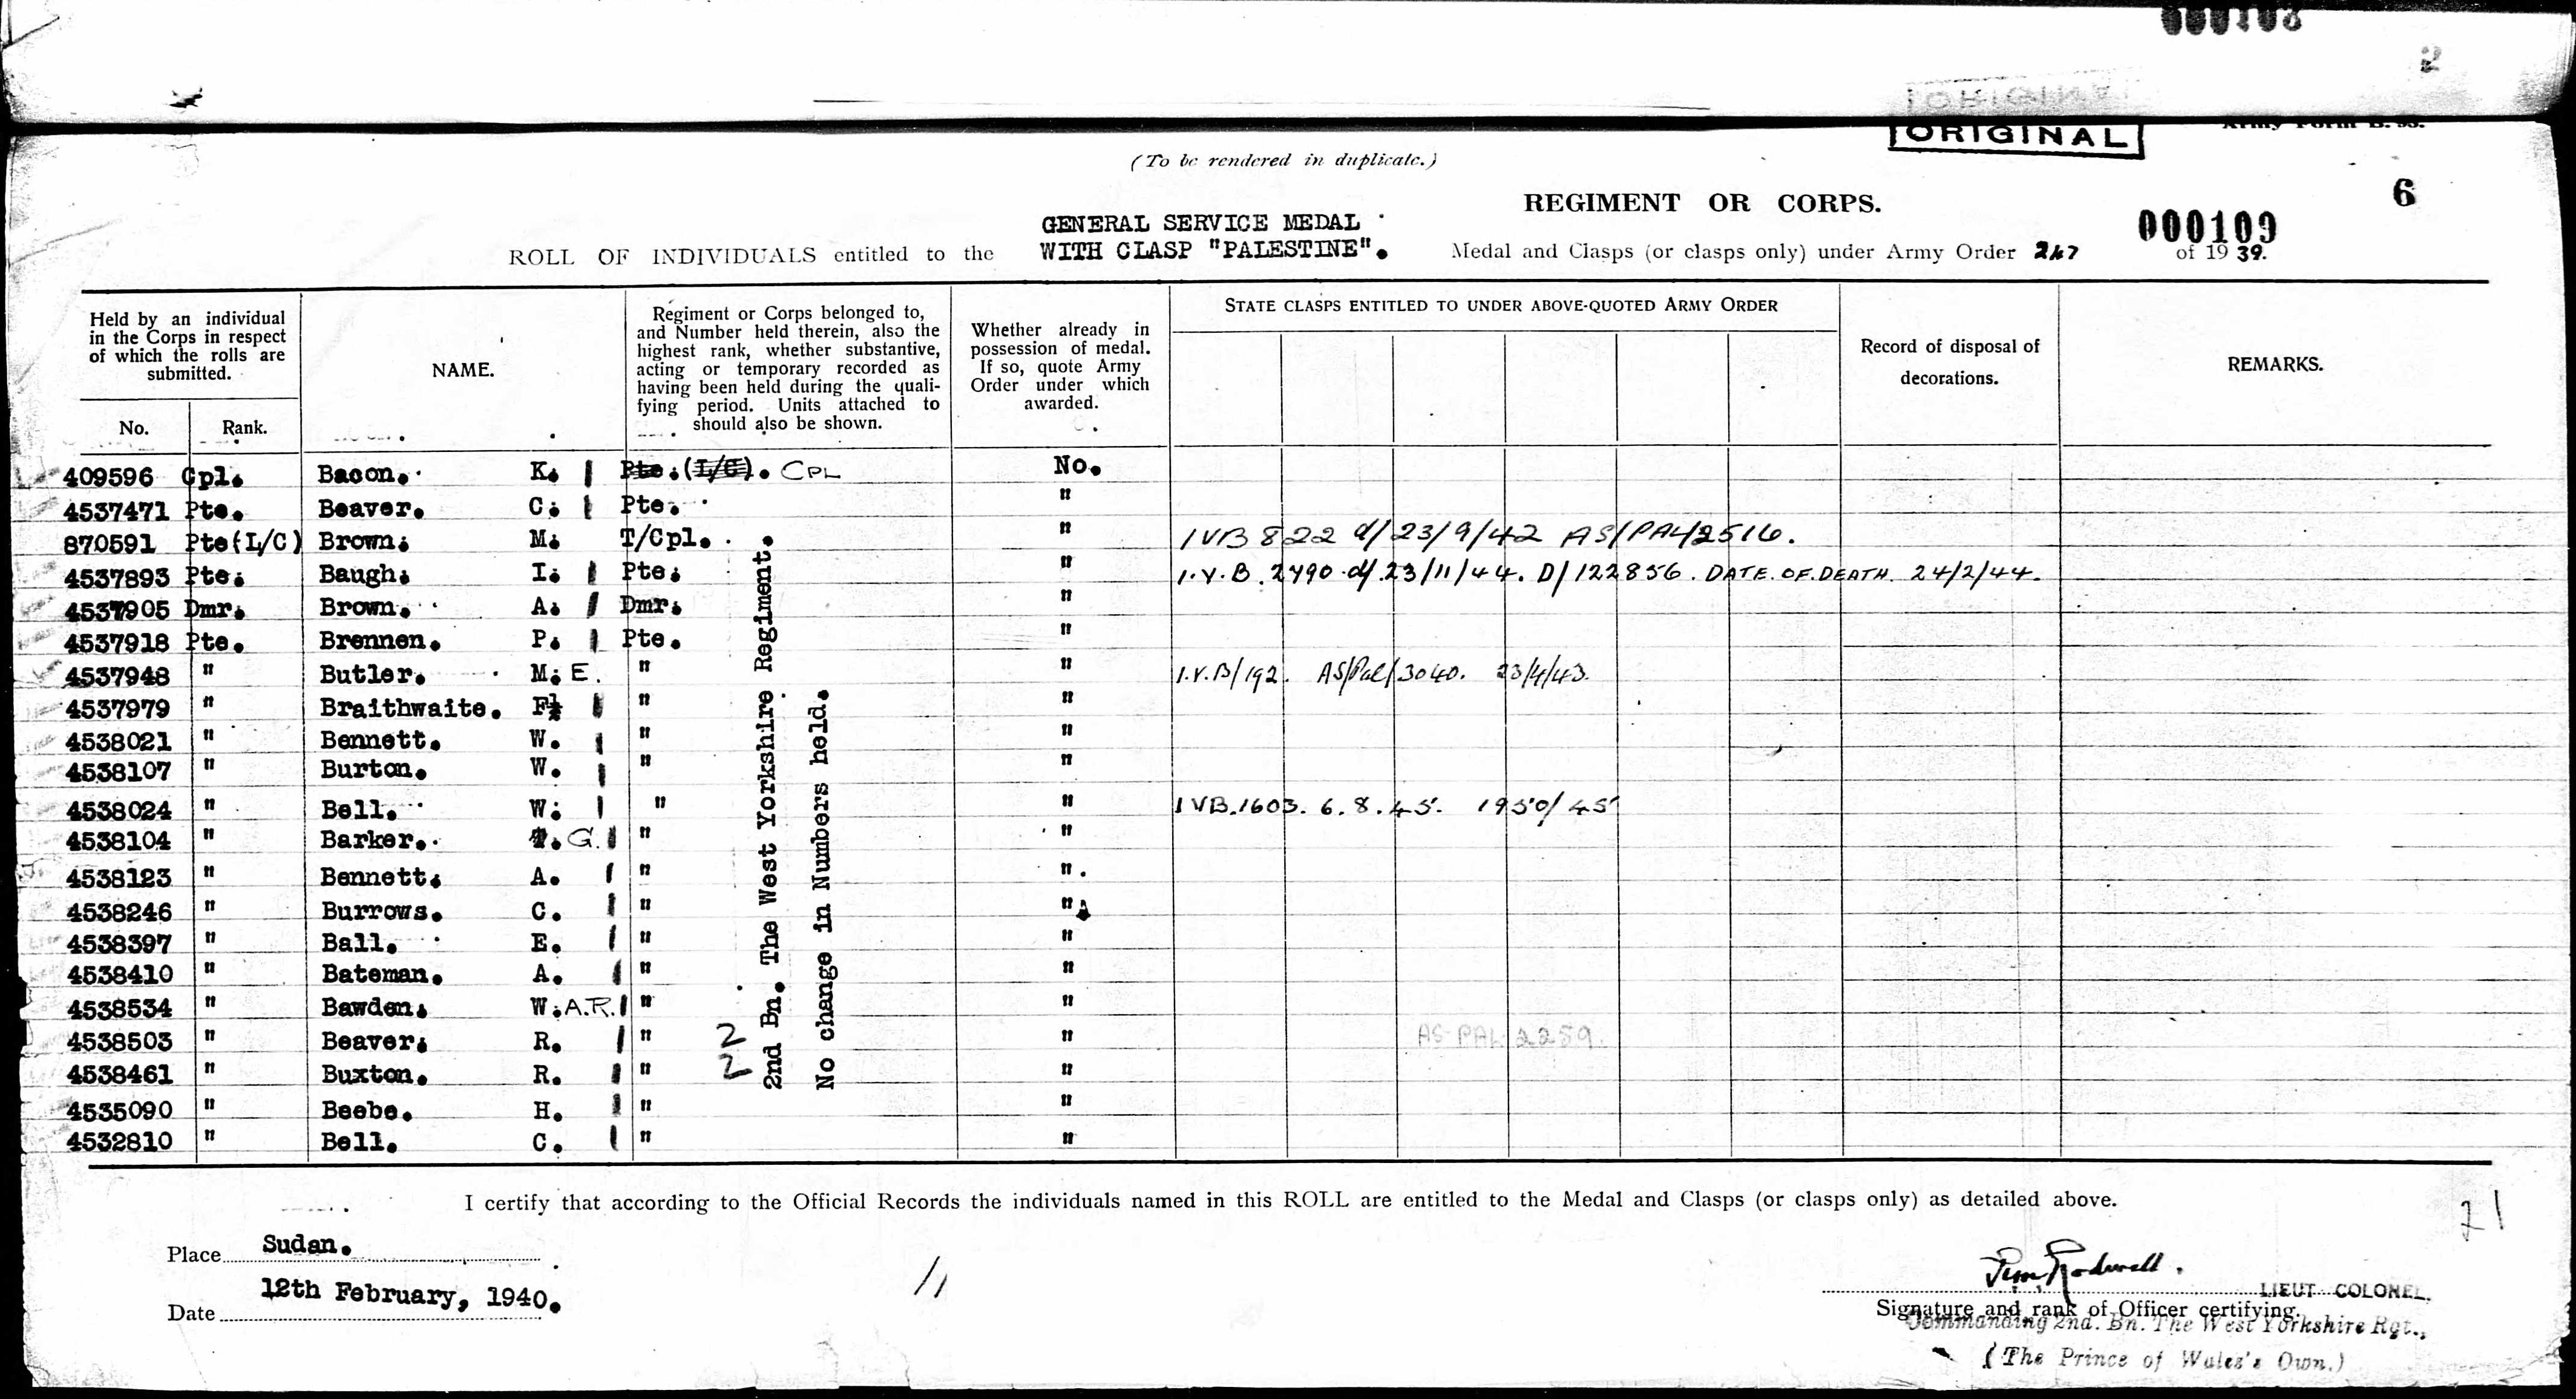 ORIGINAL
2
ORIGINAL
(To be rendered in duplicate.)
REGIMENT OR CORPS.
6
000109
ROLL OF INDIVIDUALS entitled to the GENERAL SERVICE MEDAL WITH CLASP "PALESTINE". Medal and Clasps (or clasps only) under Army Order 247 of 1939.
Held by an individual in the Corps in respect of which the rolls are submitted.
No. Rank.
NAME.
Regiment or Corps belonged to, and Number held therein, also the highest rank, whether substantive, acting or temporary recorded as having been held during the qualifying period. Units attached to should also be shown.
Whether already in possession of medal. If so, quote Army Order under which awarded.
STATE CLASPS ENTITLED TO UNDER ABOVE-QUOTED ARMY ORDER
Record of disposal of decorations.
REMARKS.
409596 Cpl. Bacon. K. Pte.(L/C). CPL No.
4537471 Pte. Beaver. C. Pte. "
870591 Pte(L/C) Brown. M. T/Cpl. " IVB 822 d/23/9/42 AS/PAL/2516.
4537893 Pte. Baugh. I. Pte. " I.V.B. 2490 d/. 23/11/44. D/122856. DATE OF DEATH 24/2/44.
4537905 Dmr. Brown. A. Dmr. "
4537918 Pte. Brennen. P. Pte. "
4537948 " Butler. M. E. " " I.V.B/192. AS/Pal/3040. 23/4/43.
4537979 " Braithwaite. F. " "
4538021 " Bennett. W. " "
4538107 " Burton. W. " "
4538024 " Bell. W. " " IVB.1603. 6.8.45. 1950/45
4538104 " Barker. G. " "
4538123 " Bennett. A. " "
4538246 " Burrows. C. " "
4538397 " Ball. E. " "
4538410 " Bateman. A. " "
4538534 " Bawden. W. A.R. " "
4538503 " Beaver. R. " 2 " AS PAL 2259.
4538461 " Buxton. R. " 2 "
4535090 " Beebe. H. " "
4532810 " Bell. C. " "
2nd Bn. The West Yorkshire Regiment.
No change in Numbers held.
I certify that according to the Official Records the individuals named in this ROLL are entitled to the Medal and Clasps (or clasps only) as detailed above.
21
Place Sudan.
Date 12th February, 1940.
LIEUT COLONEL.
Signature and rank of Officer certifying.
Commanding 2nd. Bn. The West Yorkshire Rgt.,
(The Prince of Wales's Own.)